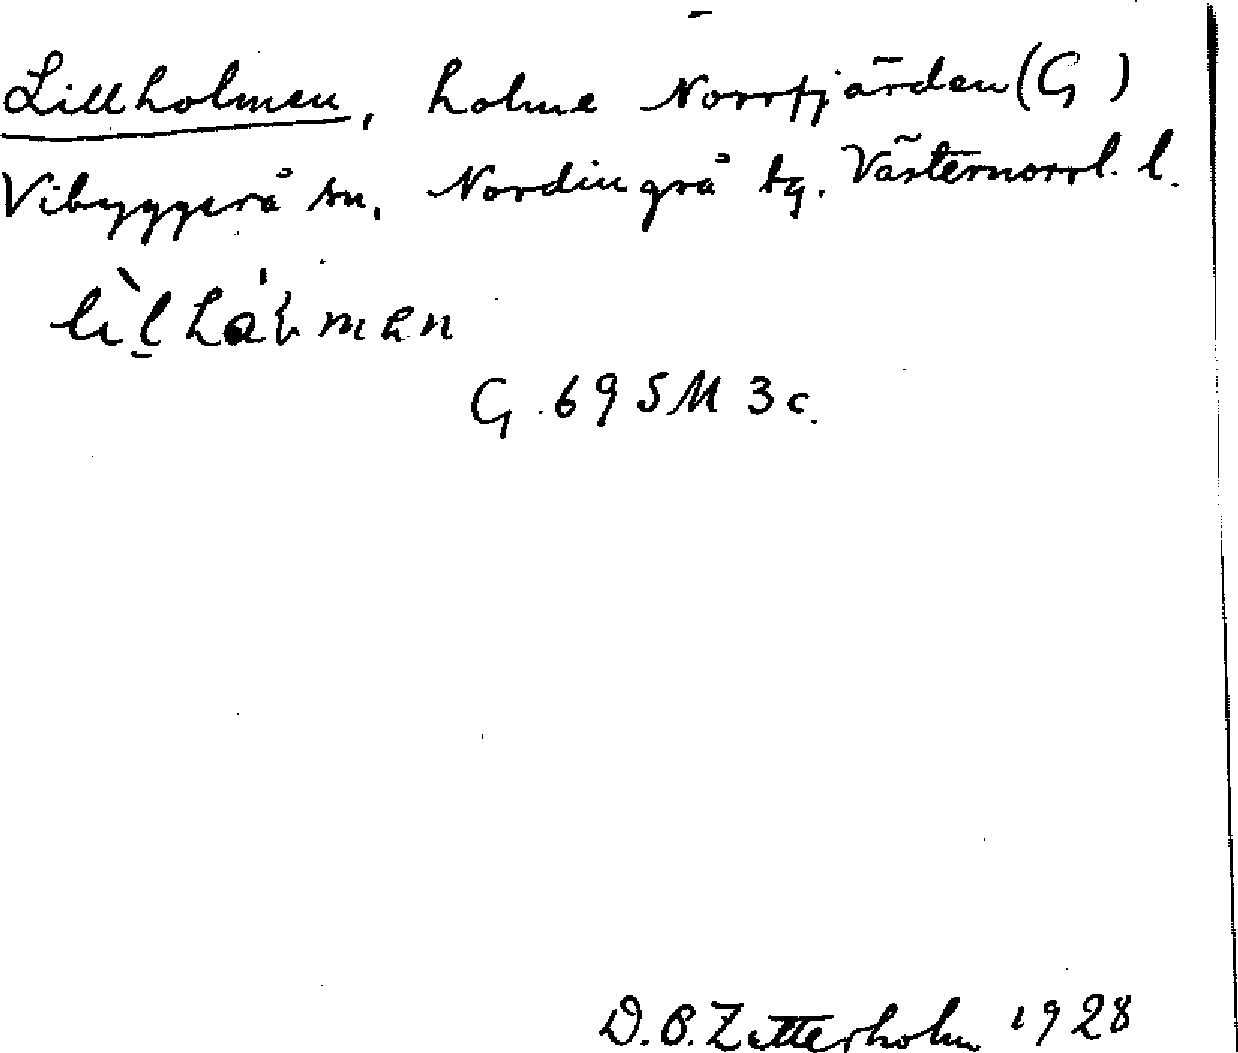 Lillholmen, holme Norrfjärden (G)
Vibyggerå sn, Nordingrå tg. Västernorrl. l.
G. 69 SM 3 c.
D. O. Zetterholm 1928